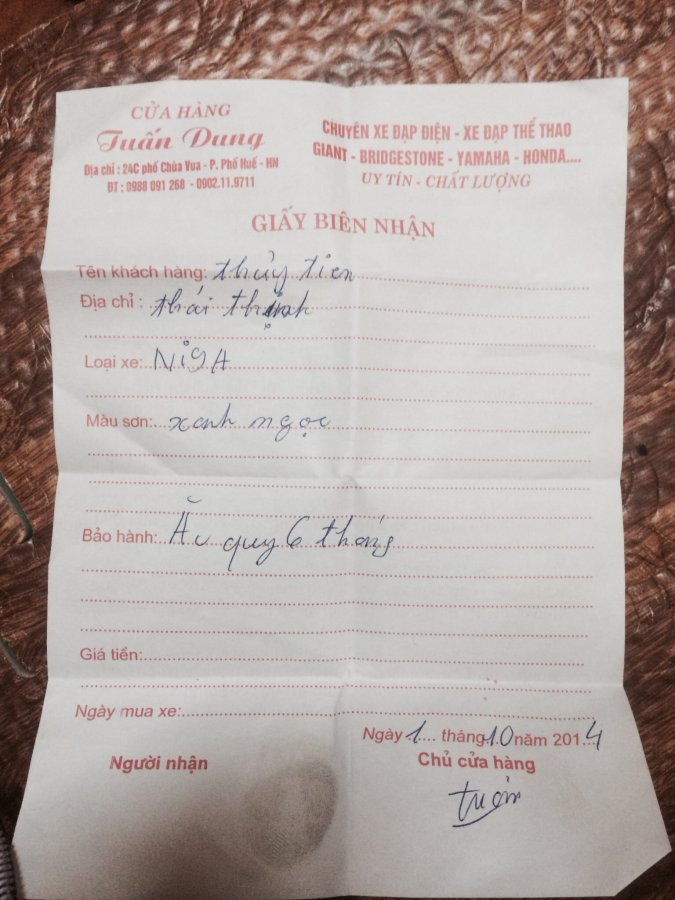 CỬA HÀNG
Tuấn Dung
Địa chỉ : 24C phố Chùa Vua - P. Phố Huế - HN
ĐT : 0988 091 268 - 0902.11.9711
CHUYÊN XE ĐẠP ĐIỆN - XE ĐẠP THỂ THAO
GIANT - BRIDGESTONE - YAMAHA - HONDA....
UY TÍN - CHẤT LƯỢNG
GIẤY BIÊN NHẬN
Tên khách hàng: thủy tiên
Địa chỉ : thái thịnh
Loại xe: Ni9A
Màu sơn: xanh ngọc
Bảo hành: Ắc quy 6 tháng
Giá tiền:
Ngày mua xe:
Ngày 1 tháng 10 năm 2014
Người nhận
Chủ cửa hàng
tuấn